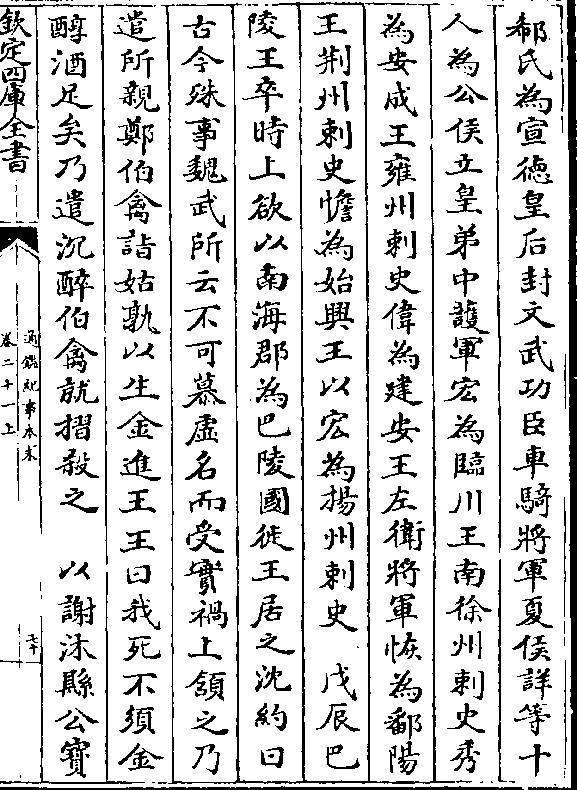 郗氏為宣徳皇后封文武功臣車騎將軍夏侯詳等十
人為公侯立皇弟中護軍宏為臨川王南徐州刺史秀
為安成王雍州刺史偉為建安王左衛將軍恢為鄱陽
王荆州刺史憺為始興王以宏為揚州刺史　戊辰巴
陵王卒時上欲以南海郡為巴陵國徙王居之沈約曰
古今殊事魏武所云不可慕虚名而受實禍上頷之乃
遣所親鄭伯禽詣姑孰以生金進王王曰我死不須金
醇酒足矣乃遣沉醉伯禽就摺殺之　以謝沐縣公寳
欽定四庫全書
通鑑紀事本末
卷二十一上
七十